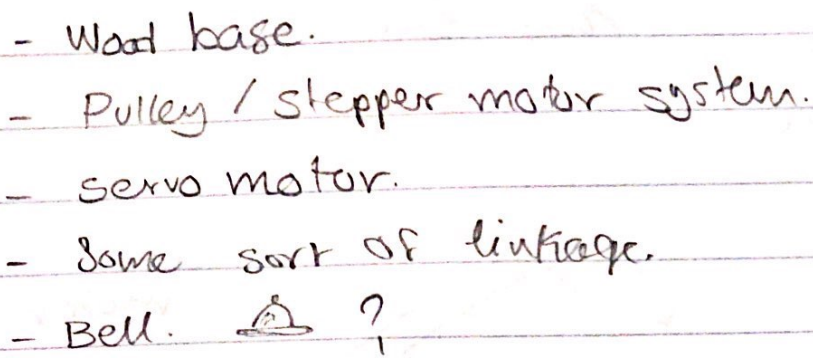 - Wood base.
- Pulley / stepper motor system.
- servo motor.
- Some sort of linkage.
- Bell. ?